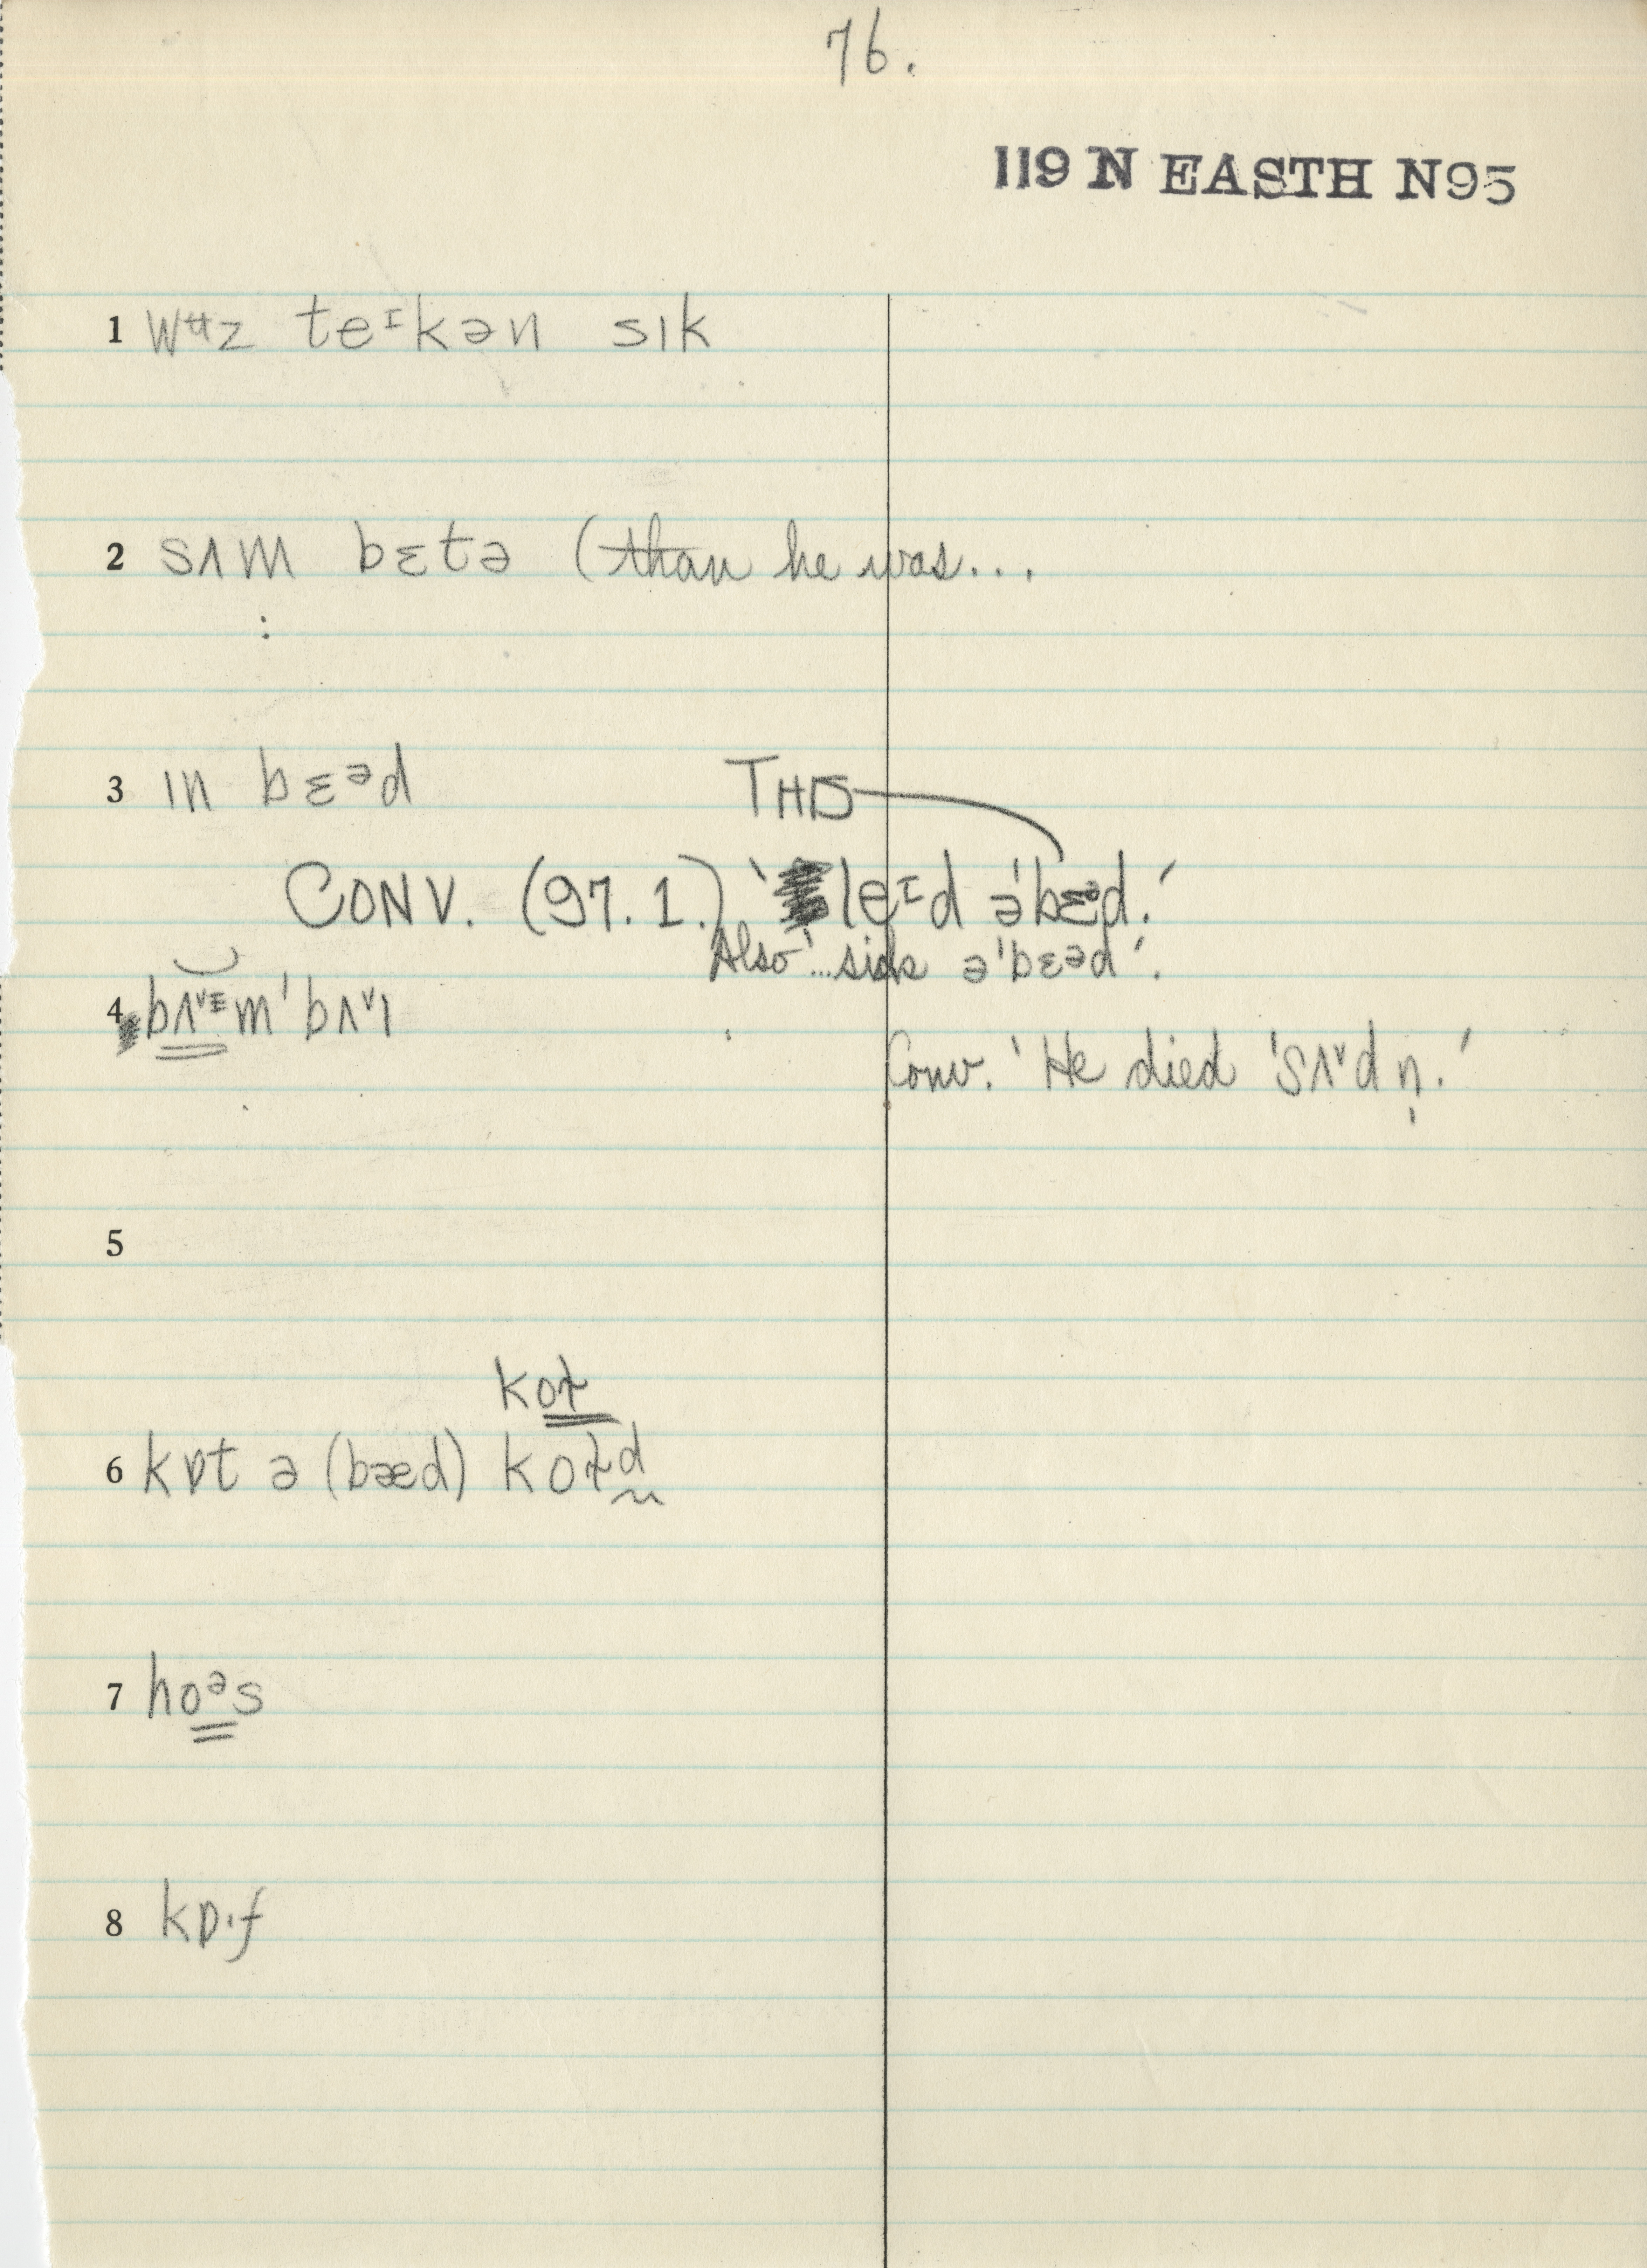 76.
119 N EASTH N95
1 wʉz teᶦkən sɪk
2 sʌm bɛtə (than he was...
3 ɪn bɛᵊd THIS
CONV. (97.1.) 'leᶦd ə'bɛᵊd.'
Also '...sick ə'bɛᵊd'.
4 m'bʌᵛɪ
Conv. 'He died 'sʌᵛdn̩.'
5
6 kɒt ə (bæd)
7 hoᵊs
8 kɒˑf